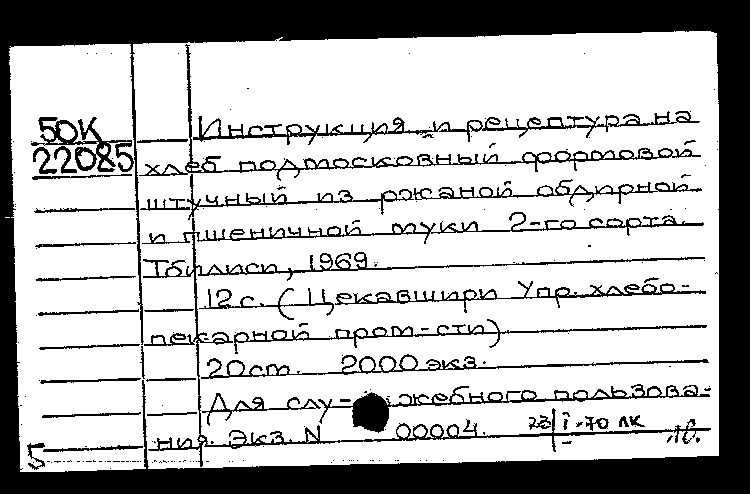 50К Инструкция и рецептура на
22085 хлеб подмосковный формовой
штучный из ржаной обдирной
и пшеничной муки 2-го сорта.
Тбилиси, 1969.
12с. (Цекавшири Упр. хлебо-
пекарной пром-сти)
20см. 2000 экз.
Для слу- жебного пользова-
ния. Экз. N 00004. 23/I-70 ЛК
5